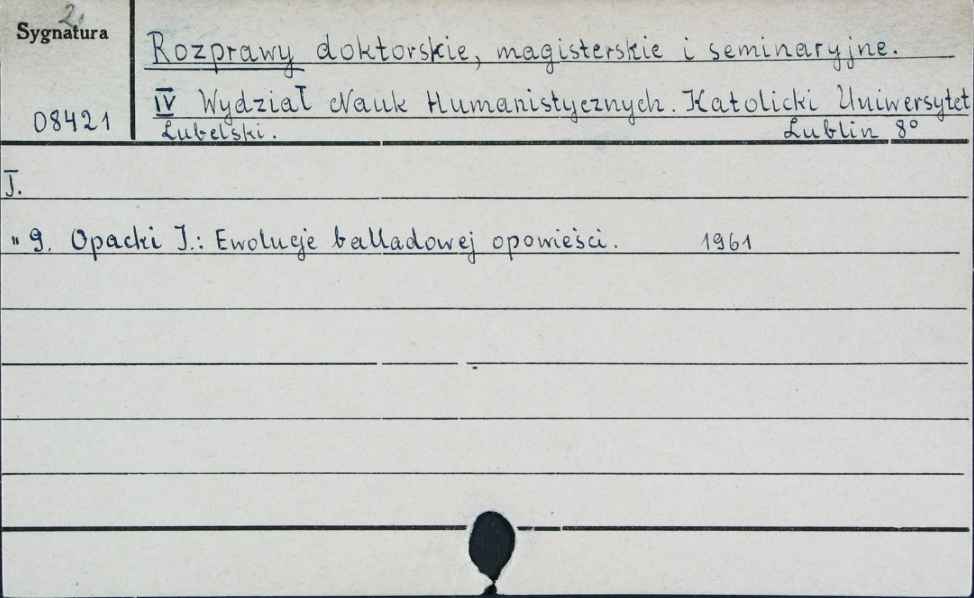 2.
Sygnatura
08421
Rozprawy doktorskie, magisterskie i seminaryjne.
IV Wydział Nauk Humanistycznych. Katolicki Uniwersytet
Lubelski. Lublin 8°
I.
" 9. Opacki I.: Ewolucje balladowej opowieści. 1961